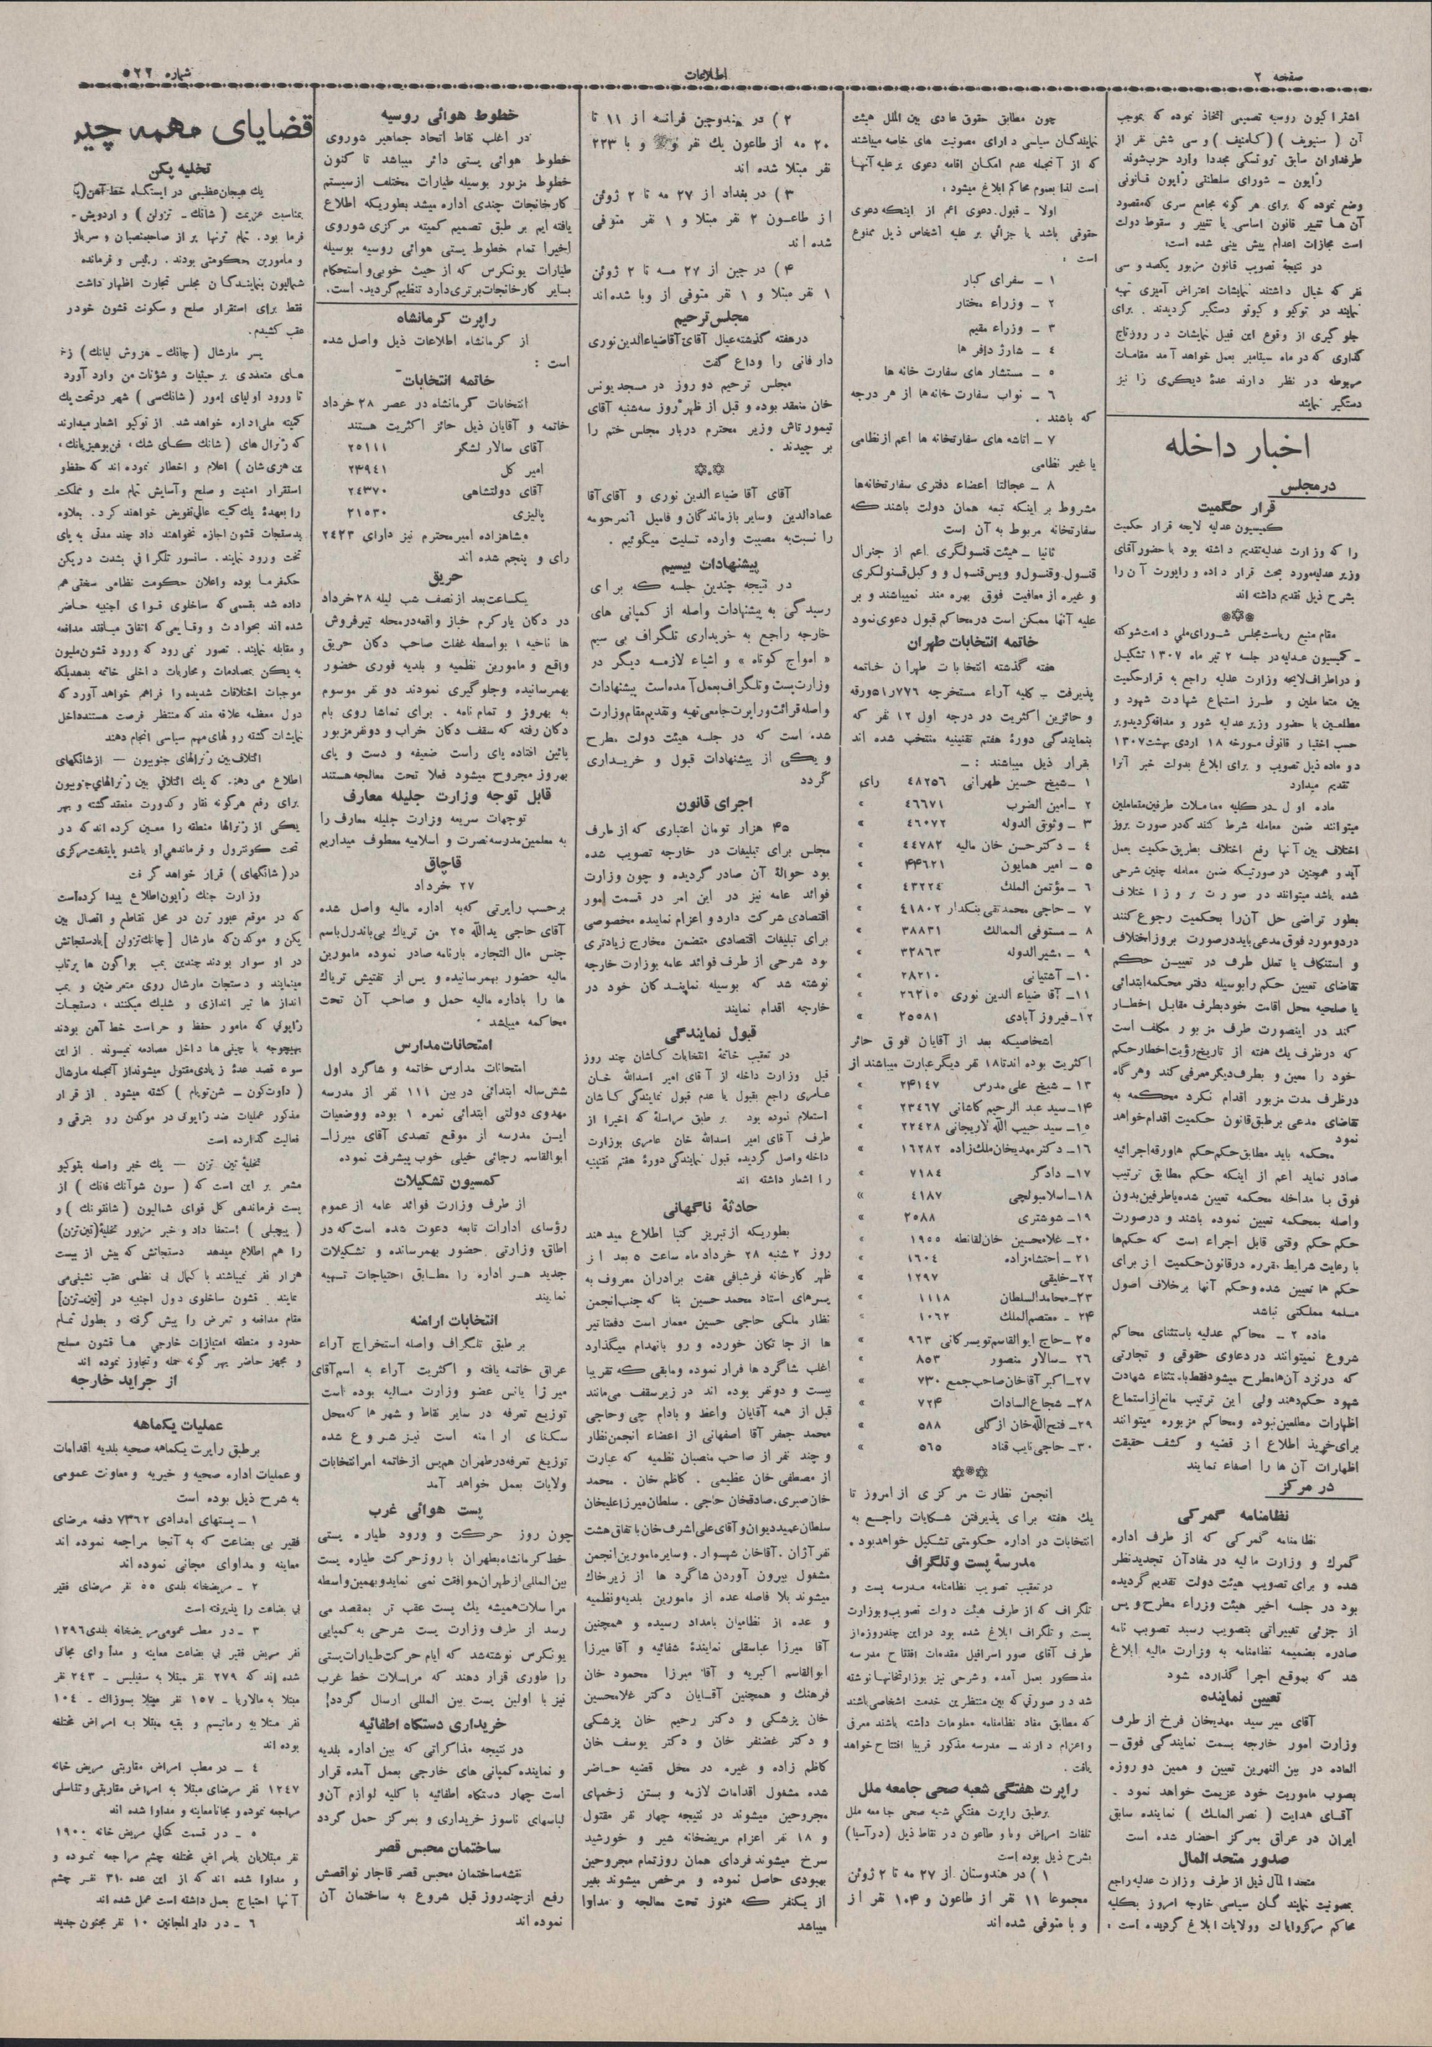 صفحه ۲
اطلاعات
شماره ۵۲۲
اشتراکیون روسیه تصمیمی اتخاذ نموده که بموجب
آن ( سنیویف ) ( کامنیف ) و سی شش نفر از
طرفداران سابق تروتسکی مجددا وارد حزب شوند
ژاپون – شورای سلطنتی ژاپون قانونی
وضع نموده که برای هر گونه مجامع سری که مقصود
آن ها تغییر قانون اساسی یا تغییر و سقوط دولت
است مجازات اعدام پیش بینی شده است
در نتیجهٔ تصویب قانون مزبور یکصد و سی
نفر که خیال داشتند نمایشات اعتراض آمیزی تهیه
نمایند در توکیو و کیوتو دستگیر گردیدند . برای
جلو گیری از وقوع این قبیل نمایشات در روز تاج
گذاری که در ماه سپتامبر بعمل خواهد آمد مقامات
مربوطه در نظر دارند عدهٔ دیگری را نیز
دستگیر نمایند
اخبار داخله
در مجلس
قرار حکمیت
کمیسیون عدلیه لایحه قرار حکمیت
را که وزارت عدلیه تقدیم داشته بود با حضور آقای
وزیر عدلیه مورد بحث قرار داده و راپورت آن را
بشرح ذیل تقدیم داشته اند
مقام منیع ریاست مجلس شورای ملی دامت شوکته
– کمیسیون عدلیه در جلسه ۲ تیر ماه ۱۳۰۷ تشکیل
و در اطراف لایحه وزارت عدلیه راجع به قرار حکمیت
بین متعاملین و طرز استماع شهادت شهود و
مطلعین با حضور وزیر عدلیه شور و مداقه گردید و بر
حسب اختیار قانونی مورخه ۱۸ اردی بهشت ۱۳۰۷
دو ماده ذیل تصویب و برای ابلاغ بدولت خبر آنرا
تقدیم میدارد
ماده اول – در کلیه معاملات طرفین متعاملین
میتوانند ضمن معامله شرط کنند که در صورت بروز
اختلاف بین آنها رفع اختلاف بطریق حکمیت بعمل
آید و همچنین در صورتیکه ضمن معامله چنین شرحی
شده باشد میتوانند در صورت بروز اختلاف
بطور تراضی حل آن را بحکمیت رجوع کنند
در دو مورد فوق مدعی باید در صورت بروز اختلاف
و استنکاف یا تعلل طرف در تعیین حکم
تقاضای تعیین حکم را بوسیله دفتر محکمه ابتدائی
یا صلحیه محل اقامت خود بطرف مقابل اخطار
کند در اینصورت طرف مزبور مکلف است
که در ظرف یک هفته از تاریخ رؤیت اخطار حکم
خود را معین و بطرف دیگر معرفی کند و هر گاه
در ظرف مدت مزبور اقدام نکرد محکمه به
تقاضای مدعی بر طبق قانون حکمیت اقدام خواهد
نمود
محکمه باید مطابق حکم حکم ها ورقه اجرائیه
صادر نماید اعم از اینکه حکم مطابق ترتیب
فوق با مداخله محکمه تعیین شده یا طرفین بدون
واصله بمحکمه تعیین نموده باشند و در صورت
حکم حکم وقتی قابل اجراء است که حکم ها
با رعایت شرایط مقرره در قانون حکمیت از برای
حکم ها تعیین شده و حکم آنها بر خلاف اصول
مسلمه مملکتی نباشد
ماده ۲ – محاکم عدلیه باستثنای محاکم
شروع نمیتوانند در دعاوی حقوقی و تجارتی
که در نزد آن ها مطرح میشود فقط باستناد شهادت
شهود حکم دهند ولی این ترتیب مانع از استماع
اظهارات مطلعین نبوده و محاکم مزبوره میتوانند
برای مزید اطلاع از قضیه و کشف حقیقت
اظهارات آن ها را اصغاء نمایند
در مرکز
نظامنامه گمرکی
نظامنامه گمرکی که از طرف اداره
گمرک و وزارت مالیه در مفاد آن تجدید نظر
شده و برای تصویب هیئت دولت تقدیم گردیده
بود در جلسه اخیر هیئت وزراء مطرح و پس
از جزئی تغییراتی بتصویب رسید تصویب نامه
صادره بضمیمه نظامنامه به وزارت مالیه ابلاغ
شد که بموقع اجرا گذارده شود
تعیین نماینده
آقای میر سید مهدیخان فرخ از طرف
وزارت امور خارجه بسمت نمایندگی فوق –
العاده در بین النهرین تعیین و همین دو روزه
بصوب ماموریت خود عزیمت خواهد نمود .
آقای هدایت ( نصر الملک ) نماینده سابق
ایران در عراق بمرکز احضار شده است
صدور متحد المال
متحد المال ذیل از طرف وزارت عدلیه راجع
بمصونیت نمایندگان سیاسی خارجه امروز بکلیه
محاکم مرکز و ایالت و ولایات ابلاغ گردیده است :
چون مطابق حقوق عادی بین الملل هیئت
نمایندگان سیاسی دارای مصونیت های خاصه میباشند
که از آنجمله عدم امکان اقامه دعوی بر علیه آنها
است لذا بعموم محاکم ابلاغ میشود :
اولا – قبول دعوی اعم از اینکه دعوی
حقوقی باشد یا جزائی بر علیه اشخاص ذیل ممنوع
است :
۱ – سفرای کبار
۲ – وزراء مختار
۳ – وزراء مقیم
۴ – شارژ دافر ها
۵ – مستشار های سفارت خانه ها
۶ – نواب سفارت خانه ها از هر درجه
که باشند .
۷ – اتاشه های سفارتخانه ها اعم از نظامی
یا غیر نظامی
۸ – عجالتا اعضاء دفتری سفارتخانه ها
مشروط بر اینکه تبعه همان دولت باشند که
سفارتخانه مربوط به آن است
ثانیا – هیئت قنسولگری اعم از جنرال
قنسول و قنسول و ویس قنسول و وکیل قنسولگری
و غیره از معافیت فوق بهره مند نمیباشند و بر
علیه آنها ممکن است در محاکم قبول دعوی نمود
خاتمه انتخابات طهران
هفته گذشته انتخابات طهران خاتمه
پذیرفت – کلیه آراء مستخرجه ۵۱٫۷۷۶ ورقه
و حائزین اکثریت در درجه اول ۱۲ نفر که
بنمایندگی دورهٔ هفتم تقنینیه منتخب شده اند
بقرار ذیل میباشند : –
۱ – شیخ حسین طهرانی ۴۸۲۵۶ رای
۲ – امین الضرب ۴۶۶۷۱ »
۳ – وثوق الدوله ۴۶۰۷۲ »
۴ – دکتر حسن خان مالیه ۴۴۷۸۲ »
۵ – امیر همایون ۴۴۶۲۱ »
۶ – مؤتمن الملک ۴۳۲۲۴ »
۷ – حاجی محمد تقی بنکدار ۴۱۸۰۲ »
۸ – مستوفی الممالک ۳۸۸۳۱ »
۹ – مشیر الدوله ۳۳۸۶۳ »
۱۰ – آشتیانی ۲۸۲۱۰ »
۱۱ – آقا ضیاء الدین نوری ۲۶۲۱۵ »
۱۲ – فیروز آبادی ۲۵۵۸۱ »
اشخاصیکه بعد از آقایان فوق حائز
اکثریت بوده اند تا ۱۸ نفر دیگر عبارت میباشند از
۱۳ – شیخ علی مدرس ۲۴۱۴۷ »
۱۴ – سید عبد الرحیم کاشانی ۲۳۴۶۷ »
۱۵ – سید حبیب الله لاریجانی ۲۲۴۲۸ »
۱۶ – دکتر مهدیخان ملک زاده ۱۶۲۸۲ »
۱۷ – دادگر ۷۱۸۴ »
۱۸ – اسلامبولچی ۴۱۸۷ »
۱۹ – شوشتری ۲۵۸۸ »
۲۰ – غلامحسین خان لقانطه ۱۹۵۵ »
۲۱ – احتشام زاده ۱۶۰۴ »
۲۲ – خلیقی ۱۲۹۷ »
۲۳ – محامد السلطان ۱۱۱۸ »
۲۴ – معتصم الملک ۱۰۶۲ »
۲۵ – حاج ابوالقاسم تویسرکانی ۹۶۳ »
۲۶ – سالار منصور ۸۵۳ »
۲۷ – اکبر آقا خان صاحب جمع ۷۳۰ »
۲۸ – شجاع السادات ۷۲۴ »
۲۹ – فتح الله خان ازگلی ۵۸۸ »
۳۰ – حاجی نایب قناد ۵۶۵ »
انجمن نظارت مرکزی از امروز تا
یک هفته برای پذیرفتن شکایات راجع به
انتخابات در اداره حکومتی تشکیل خواهد بود .
مدرسهٔ پست و تلگراف
در تعقیب تصویب نظامنامه مدرسه پست و
تلگراف که از طرف هیئت دولت تصویب و بوزارت
پست و تلگراف ابلاغ شده بود در این چند روزه از
طرف آقای صور اسرافیل مقدمات افتتاح مدرسه
مذکور بعمل آمده و شرحی نیز بوزارتخانها نوشته
شد در صورتی که بین منتظرین خدمت اشخاصی باشند
که مطابق مفاد نظامنامه معلومات داشته باشند معرفی
و اعزام دارند – مدرسه مذکور قریبا افتتاح خواهد
یافت .
راپرت هفتگی شعبه صحی جامعه ملل
بر طبق راپرت هفتگی شعبه صحی جامعه ملل
تلفات امراض وبا و طاعون در نقاط ذیل (در آسیا)
بشرح ذیل بوده است
۱ ) در هندوستان از ۲۷ مه تا ۲ ژوئن
مجموعا ۱۱ نفر از طاعون و ۱۰۴ نفر از
وبا متوفی شده اند
۲ ) در هندوچین فرانسه از ۱۱ تا
۲۰ مه از طاعون یک نفر و با ۲۲۳
نفر مبتلا شده اند
۳ ) در بغداد از ۲۷ مه تا ۲ ژوئن
از طاعون ۲ نفر مبتلا و ۱ نفر متوفی
شده اند
۴ ) در چین از ۲۷ مه تا ۲ ژوئن
۱ نفر مبتلا و ۱ نفر متوفی از وبا شده اند
مجلس ترحیم
در هفته گذشته عیال آقای آقا ضیاء الدین نوری
دار فانی را وداع گفت
مجلس ترحیم دو روز در مسجد یونس
خان منعقد بوده و قبل از ظهر روز سه شنبه آقای
تیمور تاش وزیر محترم دربار مجلس ختم را
بر چیدند .
آقای آقا ضیاء الدین نوری و آقای آقا
عماد الدین و سایر بازماندگان و فامیل آنمرحومه
را نسبت به مصیبت وارده تسلیت میگوئیم .
پیشنهادات بیسیم
در نتیجه چندین جلسه که برای
رسیدگی به پیشنهادات واصله از کمپانی های
خارجه راجع به خریداری تلگراف بی سیم
« امواج کوتاه » و اشیاء لازمه دیگر در
وزارت پست و تلگراف بعمل آمده است پیشنهادات
واصله قرائت و راپرت جامعی تهیه و تقدیم مقام وزارت
شده است که در جلسه هیئت دولت مطرح
و یکی از پیشنهادات قبول و خریداری
گردد
اجرای قانون
۴۵ هزار تومان اعتباری که از طرف
مجلس برای تبلیغات در خارجه تصویب شده
بود حوالهٔ آن صادر گردیده و چون وزارت
فوائد عامه نیز در این امر در قسمت امور
اقتصادی شرکت دارد و اعزام نماینده مخصوصی
برای تبلیغات اقتصادی متضمن مخارج زیادتری
بود شرحی از طرف فوائد عامه بوزارت خارجه
نوشته شد که بوسیله نمایندگان خود در
خارجه اقدام نمایند
قبول نمایندگی
در تعقیب خاتمهٔ انتخابات کاشان چند روز
قبل وزارت داخله از آقای امیر اسدالله خان
عامری راجع بقبول یا عدم قبول نمایندگی کاشان
استعلام نموده بود بر طبق مراسلهٔ که اخیرا از
طرف آقای امیر اسدالله خان عامری بوزارت
داخله واصل گردیده قبول نمایندگی دورهٔ هفتم تقنینیه
را اشعار داشته اند
حادثهٔ ناگهانی
بطوریکه از تبریز کتبا اطلاع میدهند
روز ۲ شنبه ۲۸ خرداد ماه ساعت ۵ بعد از
ظهر کارخانه فرشبافی هفت برادران معروف به
پسرهای استاد محمد حسین بنا که جنب انجمن
نظار ملکی حاجی حسین معمار است دفعتا تیر
ها از جا تکان خورده و رو بانهدام میگذارد
اغلب شاگرد ها فرار نموده و مابقی که تقریبا
بیست و دو نفر بوده اند در زیر سقف می مانند
قبل از همه آقایان واعظ و بادام چی و حاجی
محمد جعفر آقا اصفهانی از اعضاء انجمن نظار
و چند نفر از صاحب منصبان نظمیه که عبارت
از مصطفی خان عظیمی . کاظم خان . محمد
خان صبری . صادقخان حاجی . سلطان میرزا علیخان
سلطان عمید دیوان و آقای علی اشرف خان با تفاق هشت
نفر آژان . آقاخان شهسوار . و سایر مامورین انجمن
مشغول بیرون آوردن شاگرد ها از زیر خاک
میشوند بلا فاصله عده از مامورین بلدیه و نظمیه
و عده از نظامیان بامداد رسیده و همچنین
آقا میرزا عباسقلی نمایندهٔ شفائیه و آقا میرزا
ابوالقاسم اکبریه و آقا میرزا محمود خان
فرهنگ و همچنین آقایان دکتر غلامحسین
خان پزشکی و دکتر رحیم خان پزشکی
و دکتر غضنفر خان و دکتر یوسف خان
کاظم زاده و غیره در محل قضیه حاضر
شده مشغول اقدامات لازمه و بستن زخمهای
مجروحین میشوند در نتیجه چهار نفر مقتول
و ۱۸ نفر اعزام مریضخانه شیر و خورشید
سرخ میشوند فردای همان روز تمام مجروحین
بهبودی حاصل نموده و مرخص میشوند بغیر
از یکنفر که هنوز تحت معالجه و مداوا
میباشد
خطوط هوائی روسیه
در اغلب نقاط اتحاد جماهیر شوروی
خطوط هوائی پستی دائر میباشد تا کنون
خطوط مزبور بوسیله طیارات مختلف از سیستم
کارخانجات چندی اداره میشد بطوریکه اطلاع
یافته ایم بر طبق تصمیم کمیته مرکزی شوروی
اخیرا تمام خطوط پستی هوائی روسیه بوسیله
طیارات یونکرس که از حیث خوبی و استحکام
بسایر کارخانجات برتری دارد تنظیم گردیده است.
راپرت کرمانشاه
از کرمانشاه اطلاعات ذیل واصل شده
است :
خاتمه انتخابات
انتخابات کرمانشاه در عصر ۲۸ خرداد
خاتمه و آقایان ذیل حائز اکثریت هستند
آقای سالار لشگر ۲۵۱۱۱
امیر کل ۲۳۹۴۱
آقای دولتشاهی ۲۴۳۷۰
پالیزی ۲۱۵۳۰
و شاهزاده امیر محترم نیز دارای ۲۴۲۳
رای و پنجم شده اند
حریق
یکساعت بعد از نصف شب لیله ۲۸ خرداد
در دکان یار کرم خباز واقعه در محله تیر فروش
ها ناحیه ۱ بواسطه غفلت صاحب دکان حریق
واقع و مامورین نظمیه و بلدیه فوری حضور
بهمرسانیده و جلوگیری نمودند دو نفر موسوم
به بهروز و تمام نامه . برای تماشا روی بام
دکان رفته که سقف دکان خراب و دو نفر مزبور
پائین افتاده پای راست ضعیفه و دست و پای
بهروز مجروح میشود فعلا تحت معالجه هستند
قابل توجه وزارت جلیله معارف
توجهات سریعه وزارت جلیله معارف را
به معلمین مدرسه نصرت و اسلامیه معطوف میداریم
قاچاق
۲۷ خرداد
برحسب راپرتی که به اداره مالیه واصل شده
آقای حاجی یدالله ۲۵ من تریاک بی باندرل باسم
جنس مال التجاره بارنامه صادر نموده مامورین
مالیه حضور بهمرسانیده و پس از تفتیش تریاک
ها را باداره مالیه حمل و صاحب آن تحت
محاکمه میباشد
امتحانات مدارس
امتحانات مدارس خاتمه و شاگرد اول
شش ساله ابتدائی در بین ۱۱۱ نفر از مدرسه
مهدوی دولتی ابتدائی نمره ۱ بوده و وضعیات
این مدرسه از موقع تصدی آقای میرزا –
ابوالقاسم رجائی خیلی خوب پیشرفت نموده
کمسیون تشکیلات
از طرف وزارت فوائد عامه از عموم
رؤسای ادارات تابعه دعوت شده است که در
اطاق وزارتی حضور بهمرسانده و تشکیلات
جدید هر اداره را مطابق احتیاجات تسهیه
نمایند
انتخابات ارامنه
بر طبق تلگراف واصله استخراج آراء
عراق خاتمه یافته و اکثریت آراء به اسم آقای
میرزا یانس عضو وزارت مسالیه بوده است
توزیع تعرفه در سایر نقاط و شهر ها که محل
سکنای ارامنه است نیز شروع شده
توزیع تعرفه در طهران هم پس از خاتمه امر انتخابات
ولایات بعمل خواهد آمد
پست هوائی غرب
چون روز حرکت و ورود طیاره پستی
خط کرمانشاه بطهران با روز حرکت طیاره پست
بین المللی از طهران موافقت نمی نماید و بهمین واسطه
مراسلات همیشه یک پست عقب تر بمقصد می
رسد از طرف وزارت پست شرحی به کمپانی
یونکرس نوشته شد که ایام حرکت طیارات پستی
را طوری قرار دهند که مراسلات خط غرب
نیز با اولین پست بین المللی ارسال گردد!
خریداری دستگاه اطفائیه
در نتیجه مذاکراتی که بین اداره بلدیه
و نماینده کمپانی های خارجی بعمل آمده قرار
است چهار دستگاه اطفائیه با کلیه لوازم آن و
لباسهای ناسوز خریداری و بمرکز حمل گردد
ساختمان محبس قصر
نقشه ساختمان محبس قصر قاجار نواقصش
رفع از چند روز قبل شروع به ساختمان آن
نموده اند
قضایای مهمه چین
تخلیه پکن
یک هیجان عظیمی در ایستگاه خط آهن
بمناسبت عزیمت ( شانک – تزولن ) و اردویش –
فرما بود. تمام ترنها پر از صاحبمنصبان و سرباز
و مامورین حکومتی بودند . رئیس و فرمانده
شمالیون بنمایندگان مجلس تجارت اظهار داشت
فقط برای استقرار صلح و سکونت قشون خود را
عقب کشیدم.
پسر مارشال ( چانک – هزوش لیانک )
های متعددی بر حیثیات و شؤنات من وارد آورد
تا ورود اولیای امور ( شانک سی ) شهر در تحت یک
کمیته ملی اداره خواهد شد. از توکیو اشعار میدارند
که ژنرال های ( شانک – کای شک ،
) اعلام و اخطار نموده اند که حفظ و
استقرار امنیت و صلح و آسایش تمام ملت و مملکت
را بعهدهٔ یک کمیته عالی تفویض خواهند کرد . بعلاوه
بدستجات قشون اجازه نخواهند داد چند مدتی به پای
تخت ورود نمایند. سانسور تلگرافی بشدت در پکن
حکمفرما بوده و اعلان حکومت نظامی سختی هم
داده شد بقسمی که ساخلوی قوای اجنبیه حاضر
شده اند بحوادث و وقایعی که اتفاق میافتد مدافعه
و مقابله نمایند. تصور نمی رود که ورود قشون ملیون
به پکن بمصادمات و محاربات داخلی خاتمه بدهد بلکه
موجبات اختلافات شدیده را فراهم خواهد آورد که
دول معظمه علاقه مند که منتظر فرصت هستند داخل
نمایشات گشته رولهای مهم سیاسی انجام دهند
ائتلاف بین ژنرالهای جنوبیون – از شانگهای
اطلاع می دهند که یک ائتلافی بین ژنرالهای جنوبیون
برای رفع هر گونه نقار و کدورت منعقد گشته و بهر
یکی از ژنرالها منطقه را معین کرده اند که در
تحت کونترول و فرماندهی او باشد و پایتخت مرکزی
در ( شانگهای ) قرار خواهد گرفت
وزارت جنگ ژاپون اطلاع پیدا کرده است
که در موقع عبور ترن در محل تقاطع و اتصال بین
پکن و موکدن که مارشال [چانک تزولن] با دستجاتش
در او سوار بودند چندین بمب بواگون ها پرتاب
مینمایند و دستجات مارشال روی متعرضین و بمب
انداز ها تیر اندازی و شلیک میکنند ، دستجات
ژاپونی که مامور حفظ و حراست خط آهن بودند
بهیچوجه با چینی ها داخل مصادمه نمیسوند . از این
سوء قصد عدهٔ زیادی مقتول میشوند از آنجمله مارشال
( داوت کون – شن تویام ) کشته میشود . از قرار
مذکور عملیات ضد ژاپونی در موکدن رو بترقی و
فعالیت گذارده است
تخلیهٔ تین تزن – یک خبر واصله بتوکیو
مشعر بر این است که ( سون شوآنک فانک ) از
پست فرماندهی کل قوای شمالیون ( شانتونک ) و
( پیچیلی ) استعفا داد و خبر مزبور تخلیهٔ (تین تزن)
را هم اطلاع میدهد دستجاتش که بیش از بیست
هزار نفر نمیباشند با کمال بی نظمی عقب نشینی می
نمایند . قشون ساخلوی دول اجنبیه در [تین تزن]
مقام مدافعه و تعرض را پیش گرفته و بطول تمام
حدود و منطقه امتیازات خارجی ها قشون مسلح
و مجهز حاضر بهر گونه حمله و تجاوز نموده اند
از جراید خارجه
عملیات یکماهه
بر طبق راپرت یکماهه صحیه بلدیه اقدامات
و عملیات اداره صحیه و خیریه و معاونت عمومی
به شرح ذیل بوده است
۱ – پستهای امدادی ۷۳۶۲ دفعه مرضای
فقیر بی بضاعت که به آنجا مراجعه نموده اند
معاینه و مداوای مجانی نموده اند
۲ – مریضخانه بلدی ۵۵ نفر مرضای فقیر
بی بضاعت را پذیرفته است
۳ – در مطب عمومی مریضخانه بلدی ۱۲۹۶
نفر مریض فقیر بی بضاعت معاینه و مداوای مجانی
شده اند که ۲۷۹ نفر مبتلا به سفلیس – ۲۴۳ نفر
مبتلا به مالاریا – ۱۵۷ نفر مبتلا بسوزاک – ۱۰۴
نفر مبتلا به رماتیسم و بقیه مبتلا به امراض مختلفه
بوده اند
۴ – در مطب امراض مقاربتی مریض خانه
۱۲۴۷ نفر مرضای مبتلا به امراض مقاربتی و تناسلی
مراجعه نموده و مجانا معاینه و مداوا شده اند
۵ – در قسمت کحالی مریض خانه ۱۹۰۰
نفر مبتلایان بامراض مختلفه چشم مراجعه نموده و
و مداوا شده اند که از این عده ۳۱۰ نفر چشم
آنها احتیاج بعمل داشته است عمل شده اند
۶ – در دار المجانین ۱۰ نفر مجنون جدید